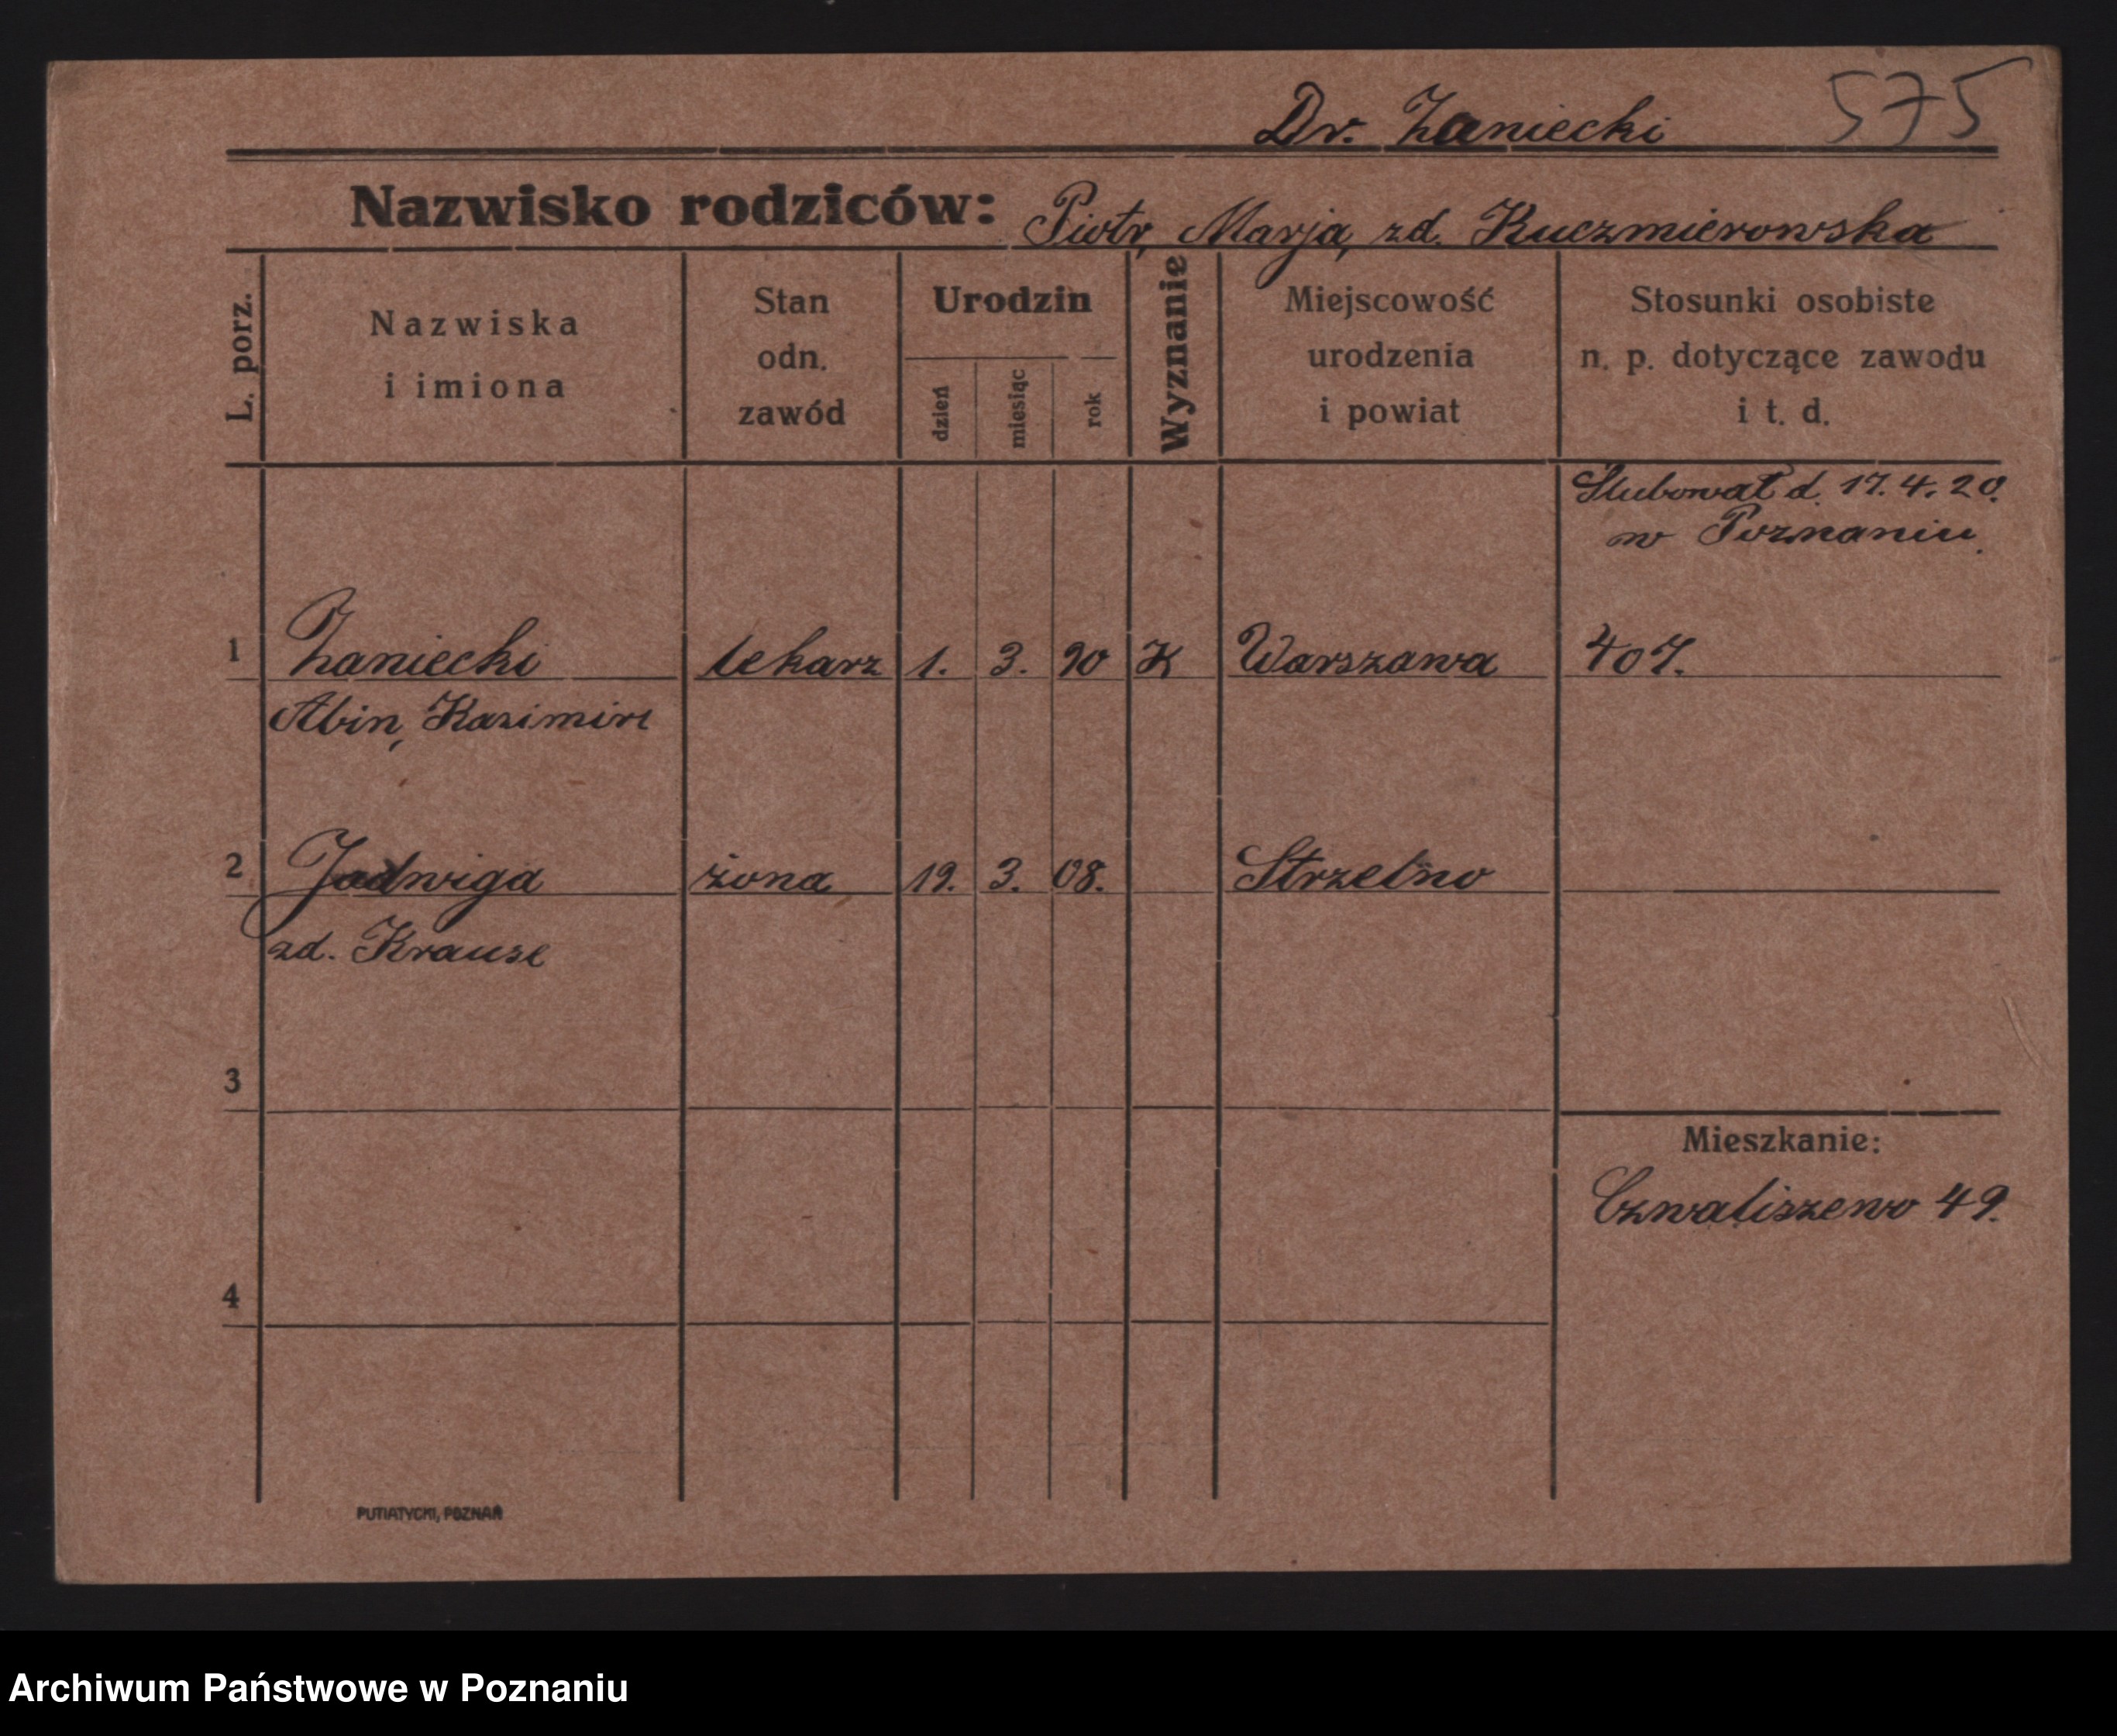 Dr. Zaniecki 575
Nazwisko rodziców: Piotr, Marja, zd. Kuczmierowska
L. porz. Nazwiska i imiona Stan odn. zawód Urodzin dzień miesiąc rok Wyznanie Miejscowość urodzenia i powiat Stosunki osobiste n. p. dotyczące zawodu i t. d.
Slubował d. 17. 4. 20.
w Poznaniu.
1 Zaniecki lekarz 1. 3. 90 K Warszawa 407.
Abin, Kazimirz
2 Jadwiga żona 19. 3. 08. Strzelno
zd. Krause
3
Mieszkanie:
Chwaliszewo 49.
4
PUTIATYCKI, POZNAŃ
Archiwum Państwowe w Poznaniu